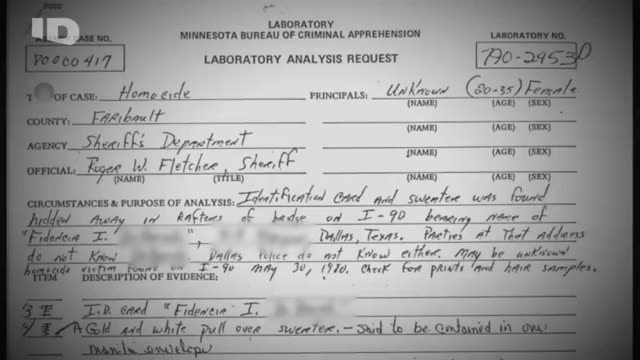 ID
LABORATORY
MINNESOTA BUREAU OF CRIMINAL APPREHENSION
CASE NO.
LABORATORY NO.
P0000417
LABORATORY ANALYSIS REQUEST
OF CASE: Homocide
PRINCIPALS: Unknown (20-35) Female
(NAME) (AGE) (SEX)
COUNTY: Faribault
(NAME) (AGE) (SEX)
AGENCY Sheriff's Department
(NAME) (AGE) (SEX)
OFFICIAL: Roger W. Fletcher, Sheriff
(NAME) (TITLE)
(NAME) (AGE) (SEX)
CIRCUMSTANCES & PURPOSE OF ANALYSIS: Identification card and sweater was found
hidden away in rafters of bridge on I-90 bearing name of
"Fidencia I. Dallas, Texas. Parties at that address
do not know Dallas Police do not know either. May be unknown
homocide victim found on I-90 May 30, 1980. Check for prints and hair samples.
ITEM DESCRIPTION OF EVIDENCE:
I.D. card "Fidencia I.
A Gold and white pull over sweater. - Said to be contained in one
manila envelope